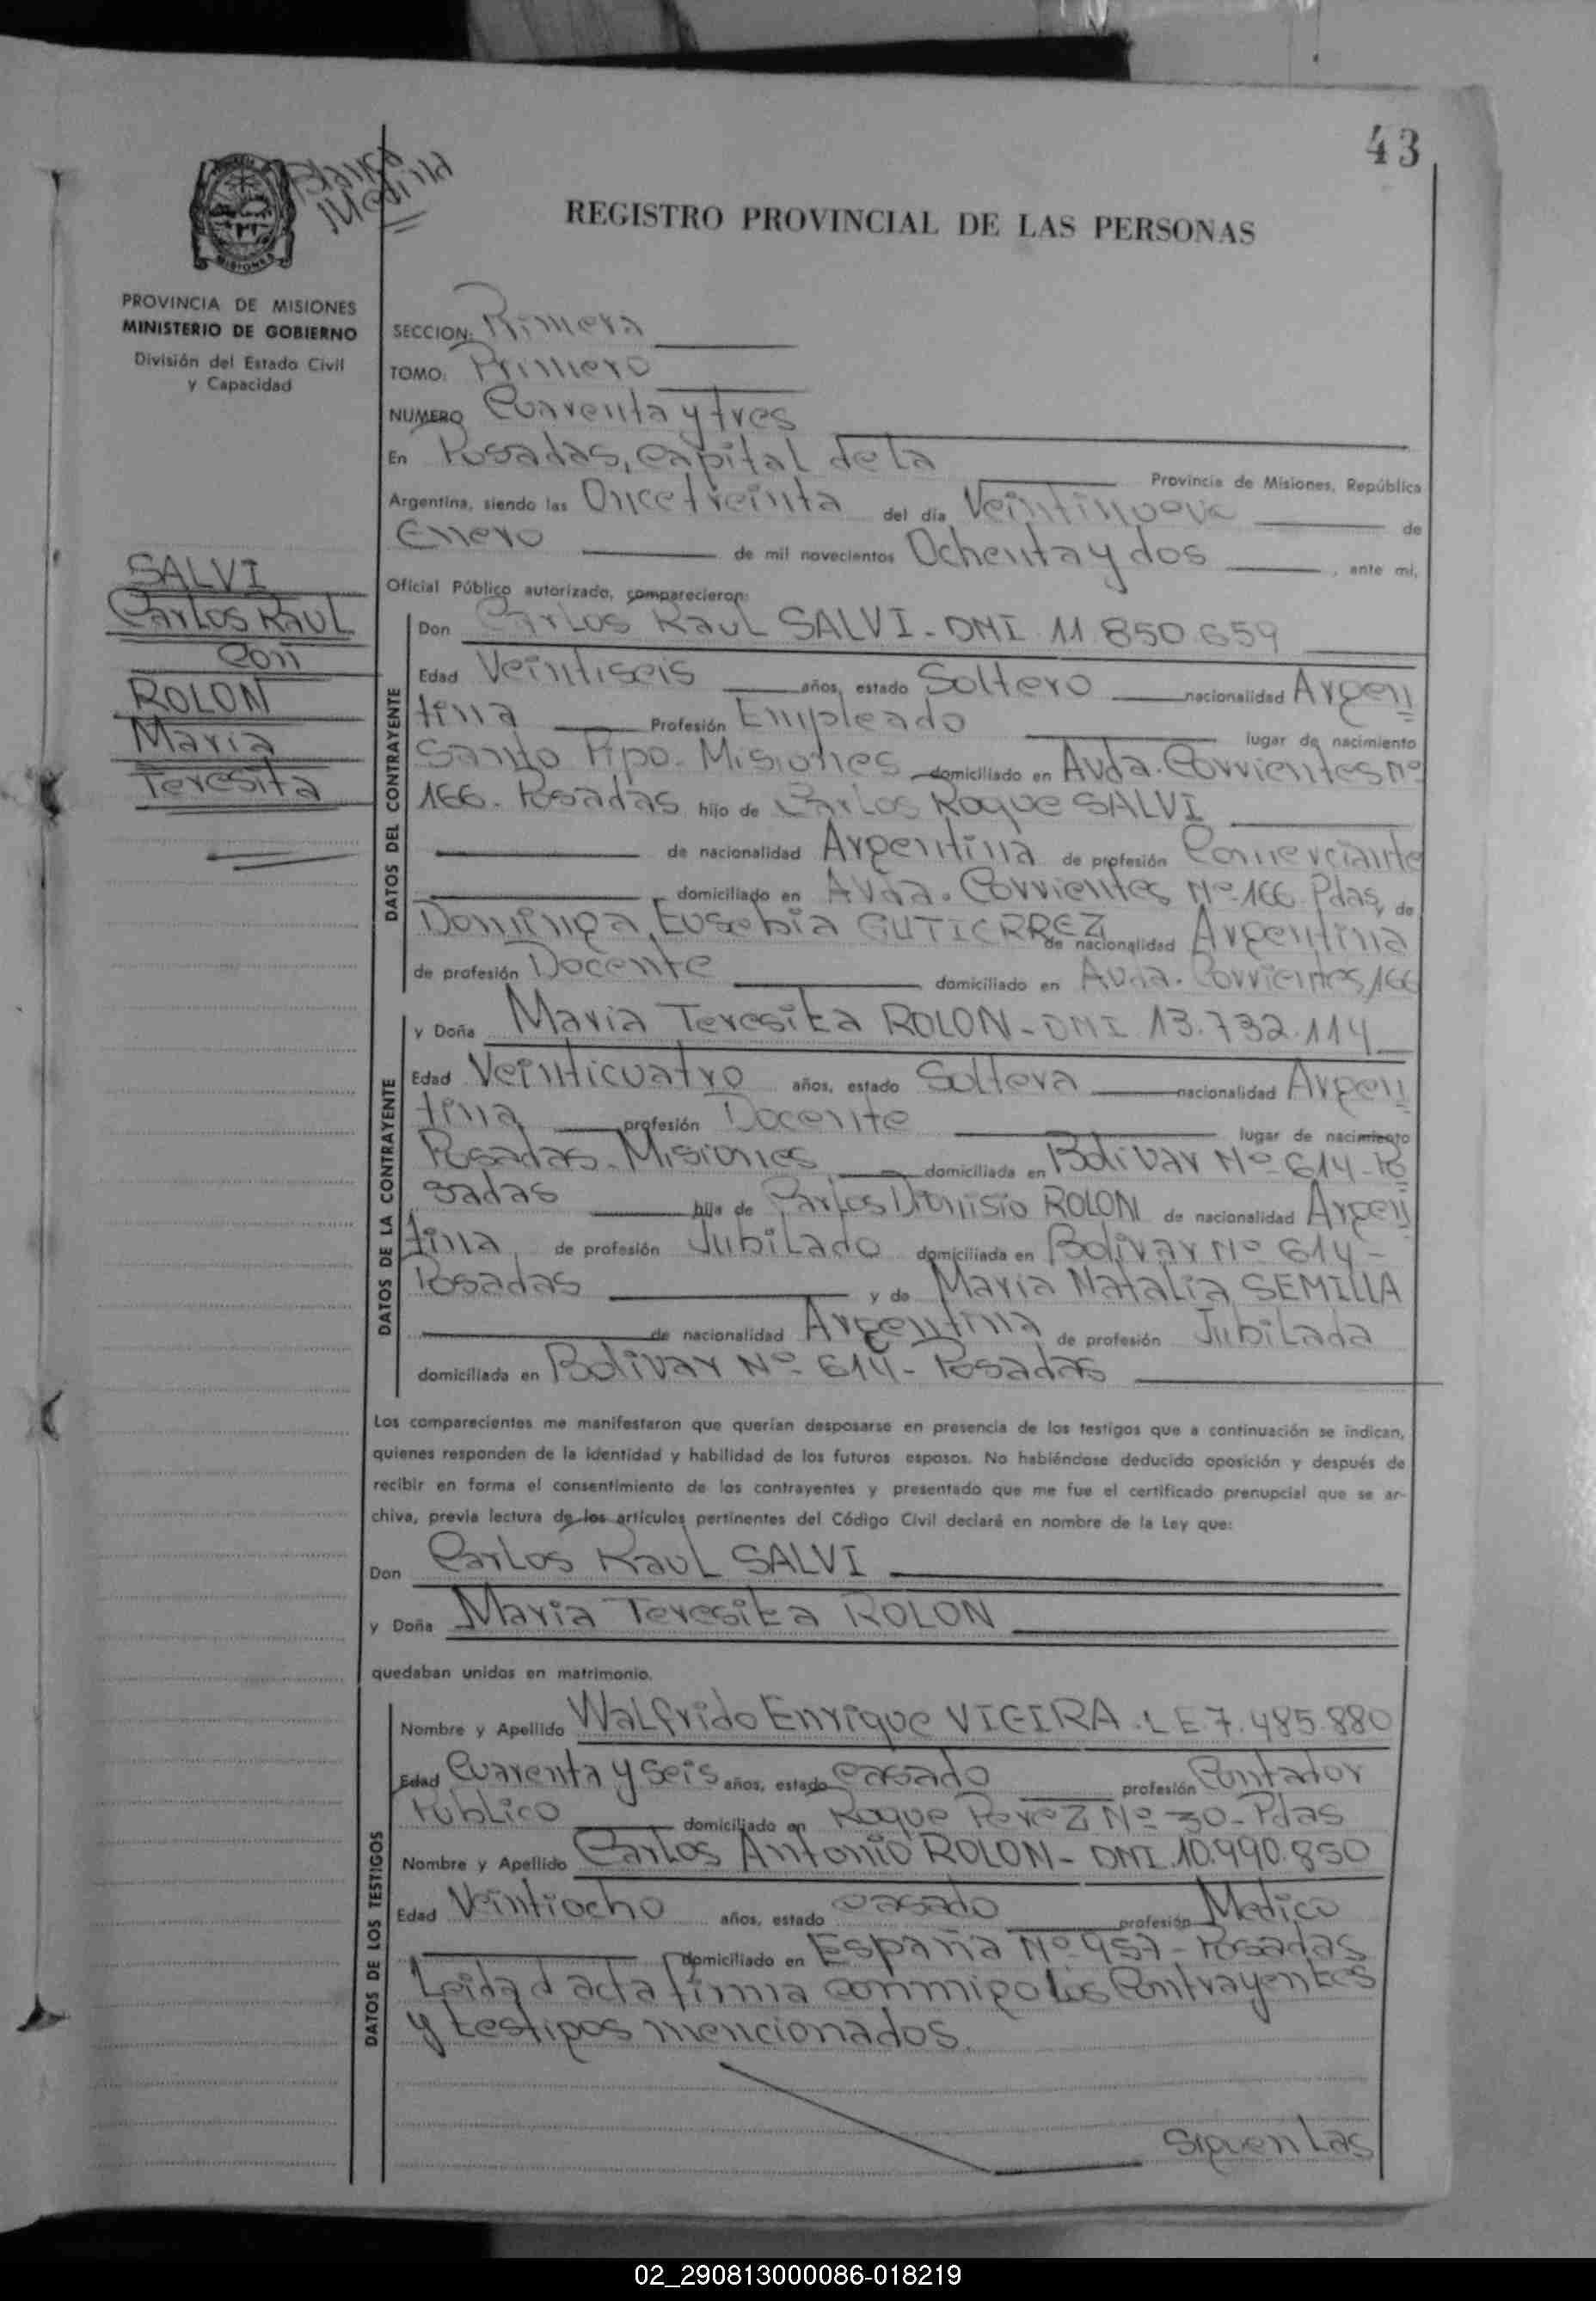 43
Blanca
Medina
REGISTRO PROVINCIAL DE LAS PERSONAS
MISIONES
PROVINCIA DE MISIONES
MINISTERIO DE GOBIERNO
División del Estado Civil
y Capacidad
SECCION: Primera
TOMO: Primero
NUMERO Cuarenta y tres
En Posadas, Capital de la Provincia de Misiones, República
Argentina, siendo las Once treinta del día Veintinueve de
Enero de mil novecientos Ochenta y dos, ante mi,
Oficial Público autorizado, comparecieron:
SALVI
Carlos Raul
con
ROLON
Maria
Teresita
DATOS DEL CONTRAYENTE
Don Carlos Raul SALVI - DNI 11 850.659
Edad Veintiseis años, estado Soltero nacionalidad Argen
tina Profesión Empleado lugar de nacimiento
Santo Pipo - Misiones domiciliado en Avda. Corrientes Nº
166 - Posadas hijo de Carlos Roque SALVI
de nacionalidad Argentina de profesión Comerciante
domiciliado en Avda. Corrientes Nº 166 Pdas, y de
Dominga Eusebia GUTIERREZ de nacionalidad Argentina
de profesión Docente domiciliado en Avda. Corrientes 166
DATOS DE LA CONTRAYENTE
y Doña Maria Teresita ROLON - DNI 13.732.114
Edad Veinticuatro años, estado Soltera nacionalidad Argen
tina profesión Docente lugar de nacimiento
Posadas - Misiones domiciliada en Bolivar Nº 614 - Po
sadas hija de Carlos Dionisio ROLON de nacionalidad Argen
tina, de profesión Jubilado domiciliada en Bolivar Nº 614 -
Posadas y de Maria Natalia SEMILLA
de nacionalidad Argentina de profesión Jubilada
domiciliada en Bolivar Nº 614 - Posadas
Los comparecientes me manifestaron que querían desposarse en presencia de los testigos que a continuación se indican,
quienes responden de la identidad y habilidad de los futuros esposos. No habiéndose deducido oposición y después de
recibir en forma el consentimiento de los contrayentes y presentado que me fue el certificado prenupcial que se ar-
chiva, previa lectura de los artículos pertinentes del Código Civil declaré en nombre de la Ley que:
Don Carlos Raul SALVI
y Doña Maria Teresita ROLON
quedaban unidos en matrimonio.
DATOS DE LOS TESTIGOS
Nombre y Apellido Walfrido Enrique VIEIRA - L E 7.485.880
Edad Cuarenta y Seis años, estado casado profesión Contador
Publico domiciliado en Roque Perez Nº 30 - Pdas
Nombre y Apellido Carlos Antonio ROLON - DNI 10.990.850
Edad Veintiocho años, estado casado profesión Medico
domiciliado en España Nº 957 - Posadas
Leida el acta firma conmigo los Contrayentes
y testigos mencionados.
Siguen las
02_290813000086-018219